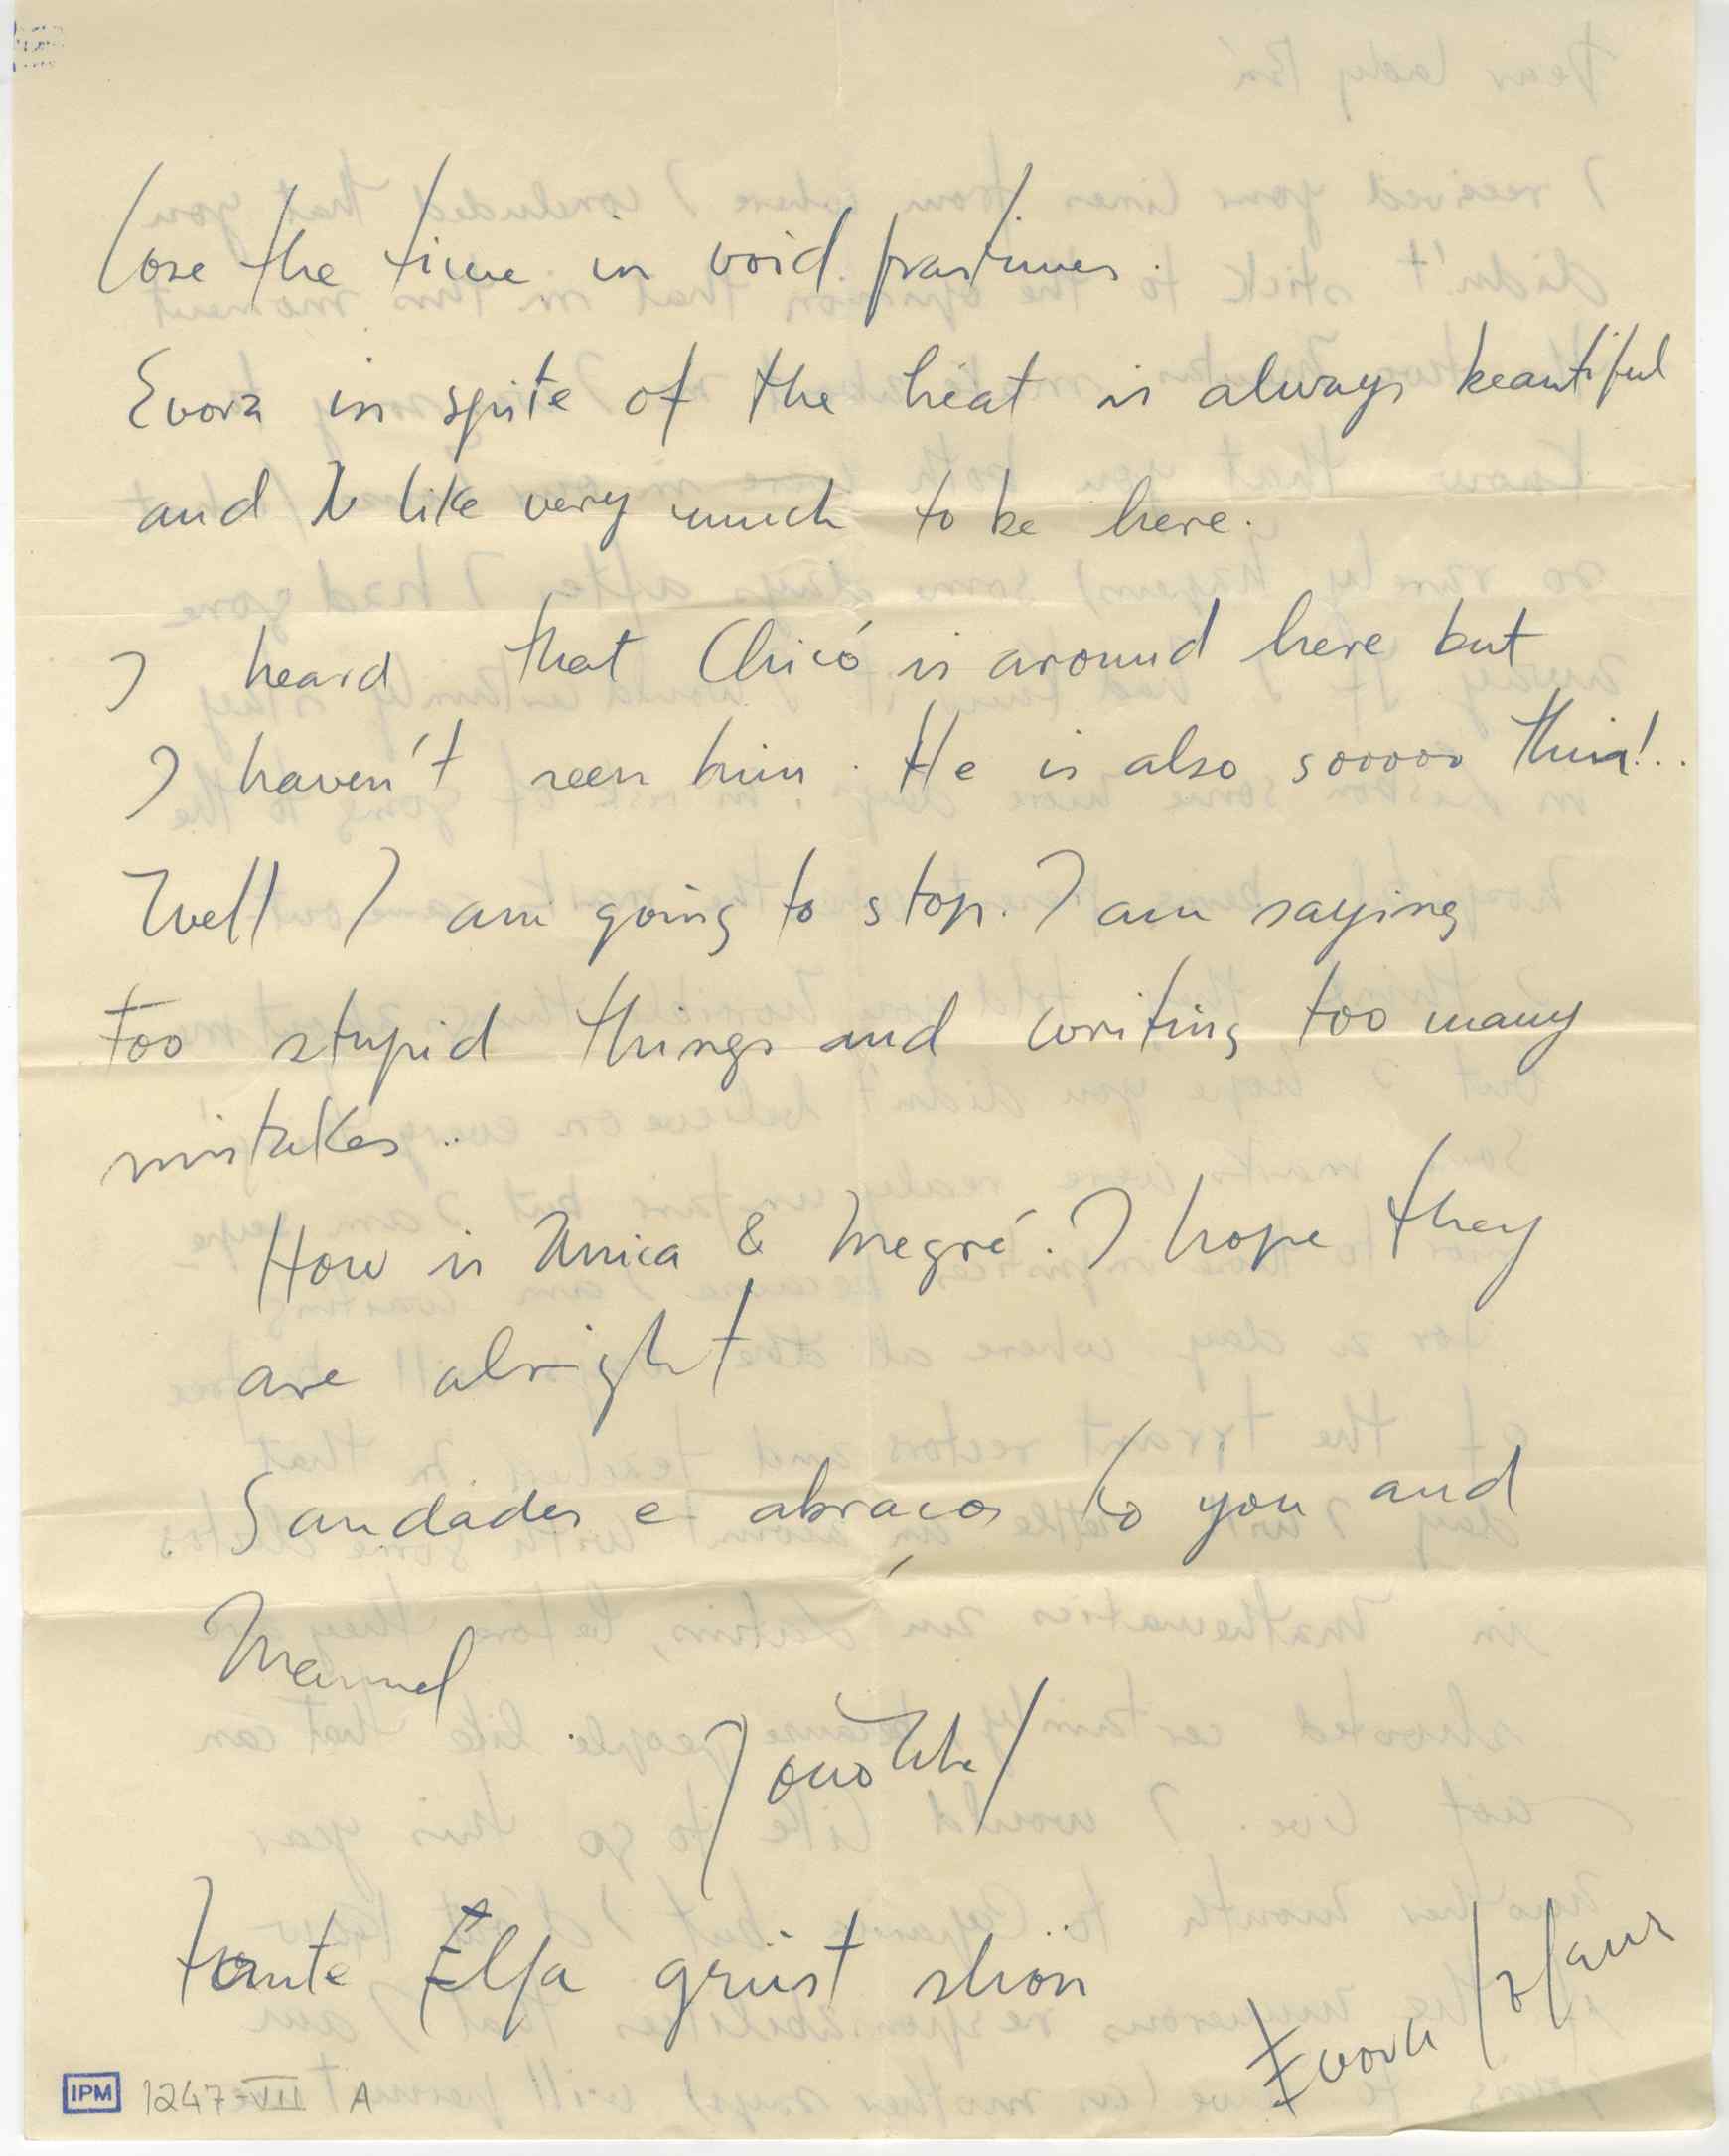 lose the time in void pastimes.
Evora in spite of the heat is always beautiful
and I like very much to be here.
I heard that Chicó is around here but
I haven't seen him. He is also sooooo thin!..
Well I am going to stop. I am saying
too stupid things and writing too many
mistakes..
How is Anica & Megré. I hope they
are alright
Saudades e abraços to you and
Manuel
Tante Elfa grüst shön
Evora
IPM 1247-VII A